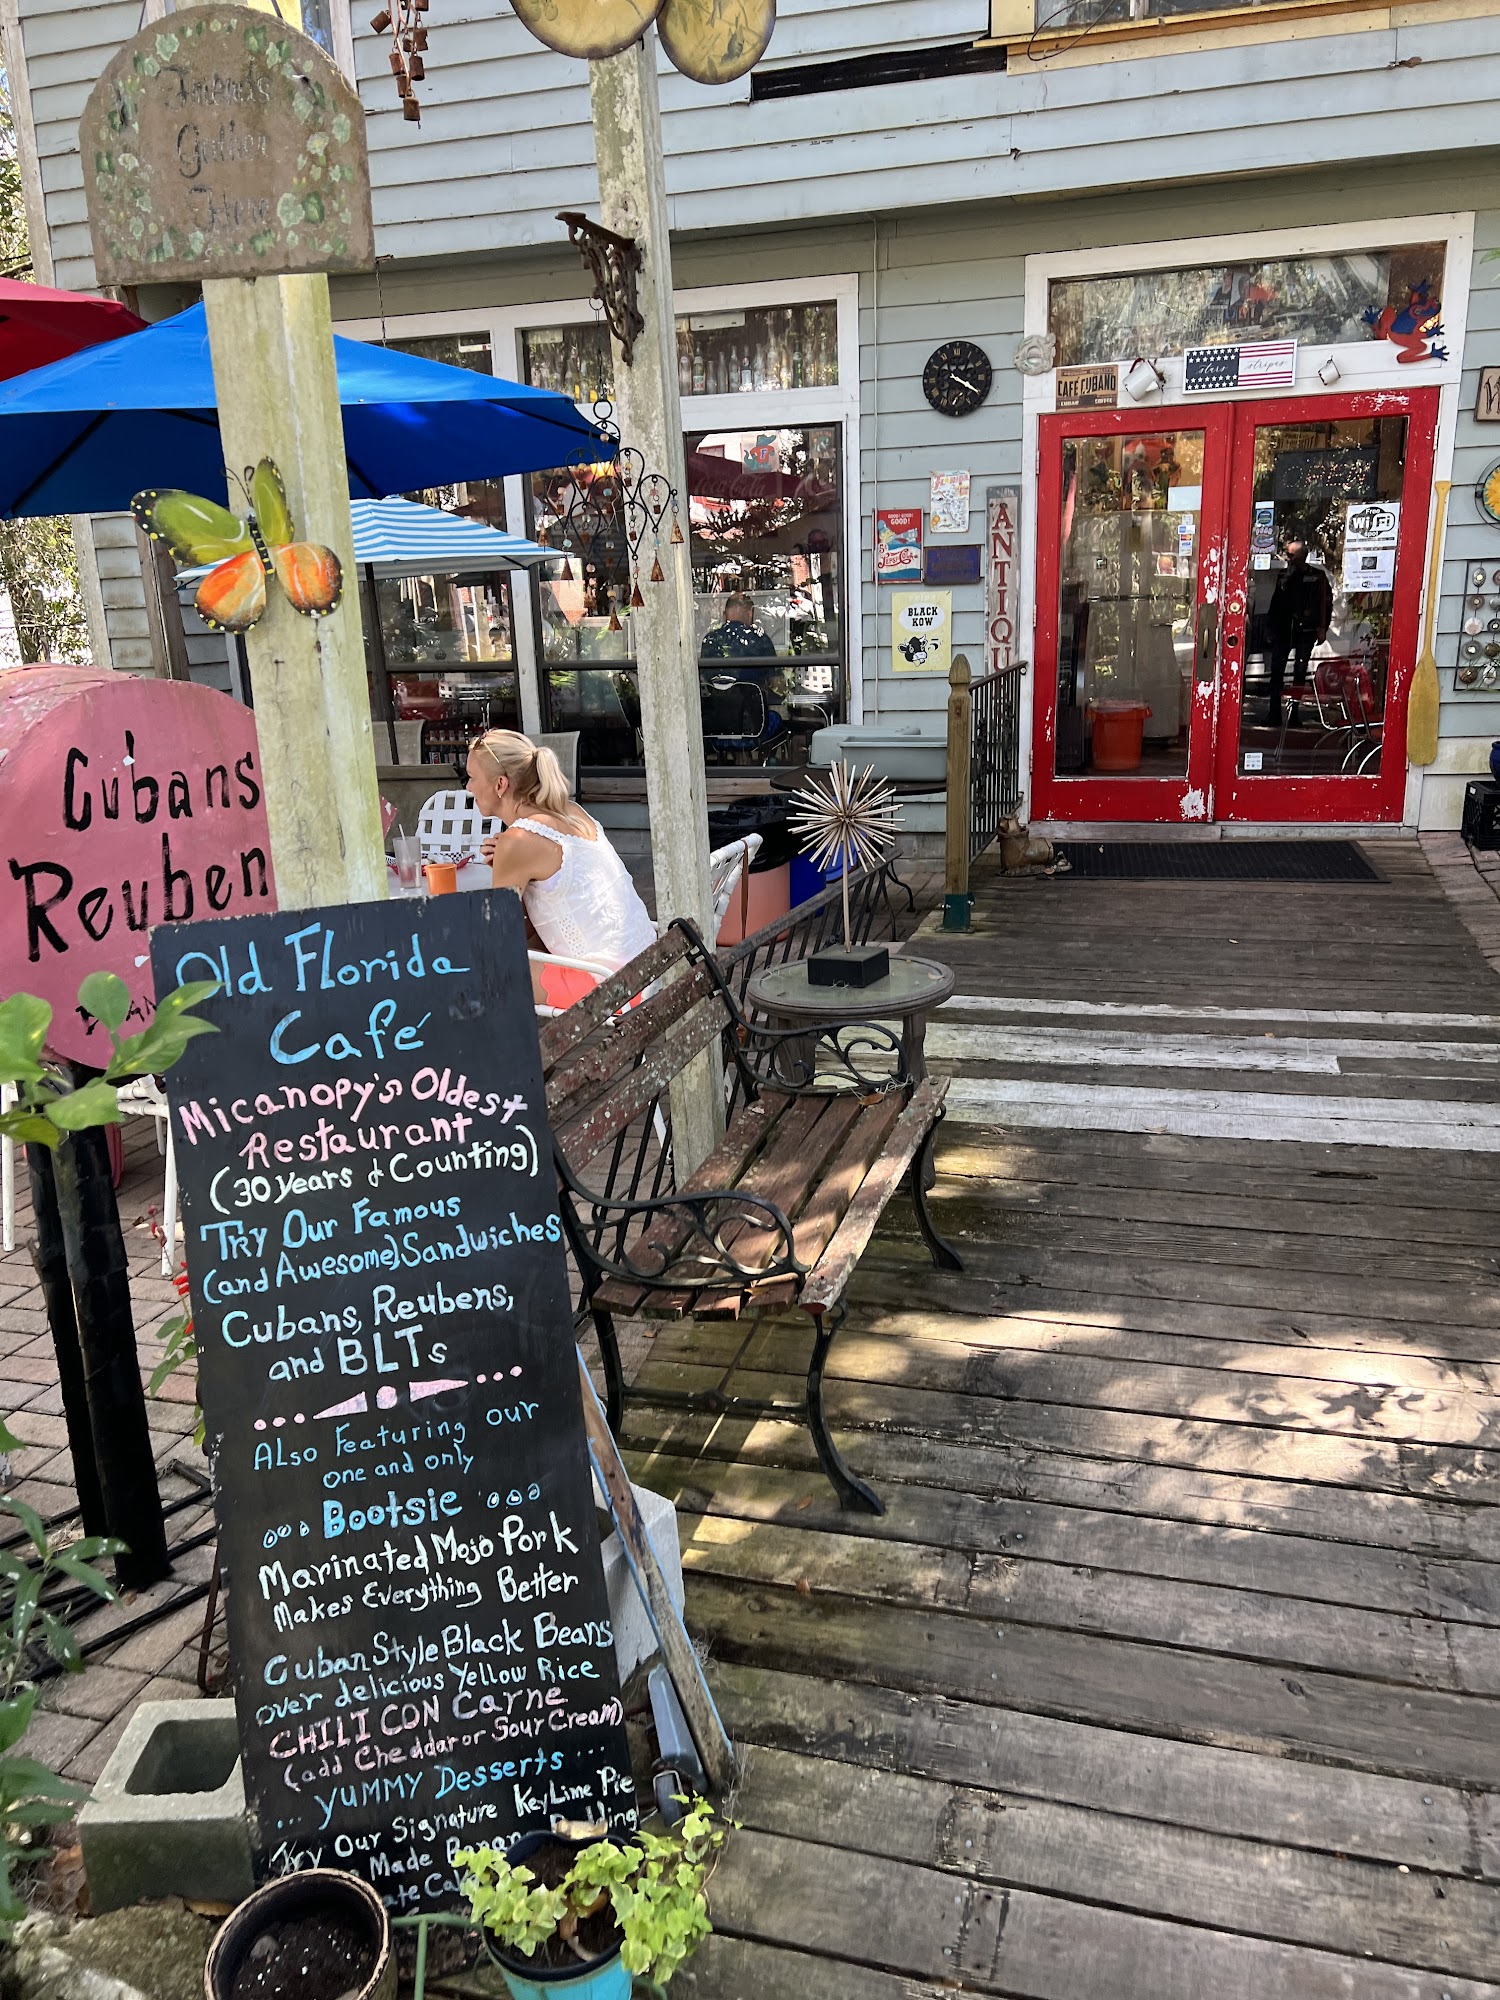 Friends
Gather
Here
Cubans
Reuben
CAFE CUBANO
CUBAN COFFEE
stars stripes
GOOD! GOOD!
GOOD!
PEPSI-Cola
BLACK
KOW
ANTIQU
Free
Wi Fi
Old Florida
Café
Micanopy's Oldest
Restaurant
(30 years & Counting)
Try Our Famous
(and Awesome) Sandwiches
Cubans, Reubens,
and BLTs
Also Featuring our
one and only
Bootsie
Marinated Mojo Pork
Makes Everything Better
Cuban Style Black Beans
over delicious Yellow Rice
CHILI CON Carne
(add Cheddar or Sour Cream)
... YUMMY Desserts ...
Try Our Signature Key Lime Pie
Made Banan Pudding
ate Cak